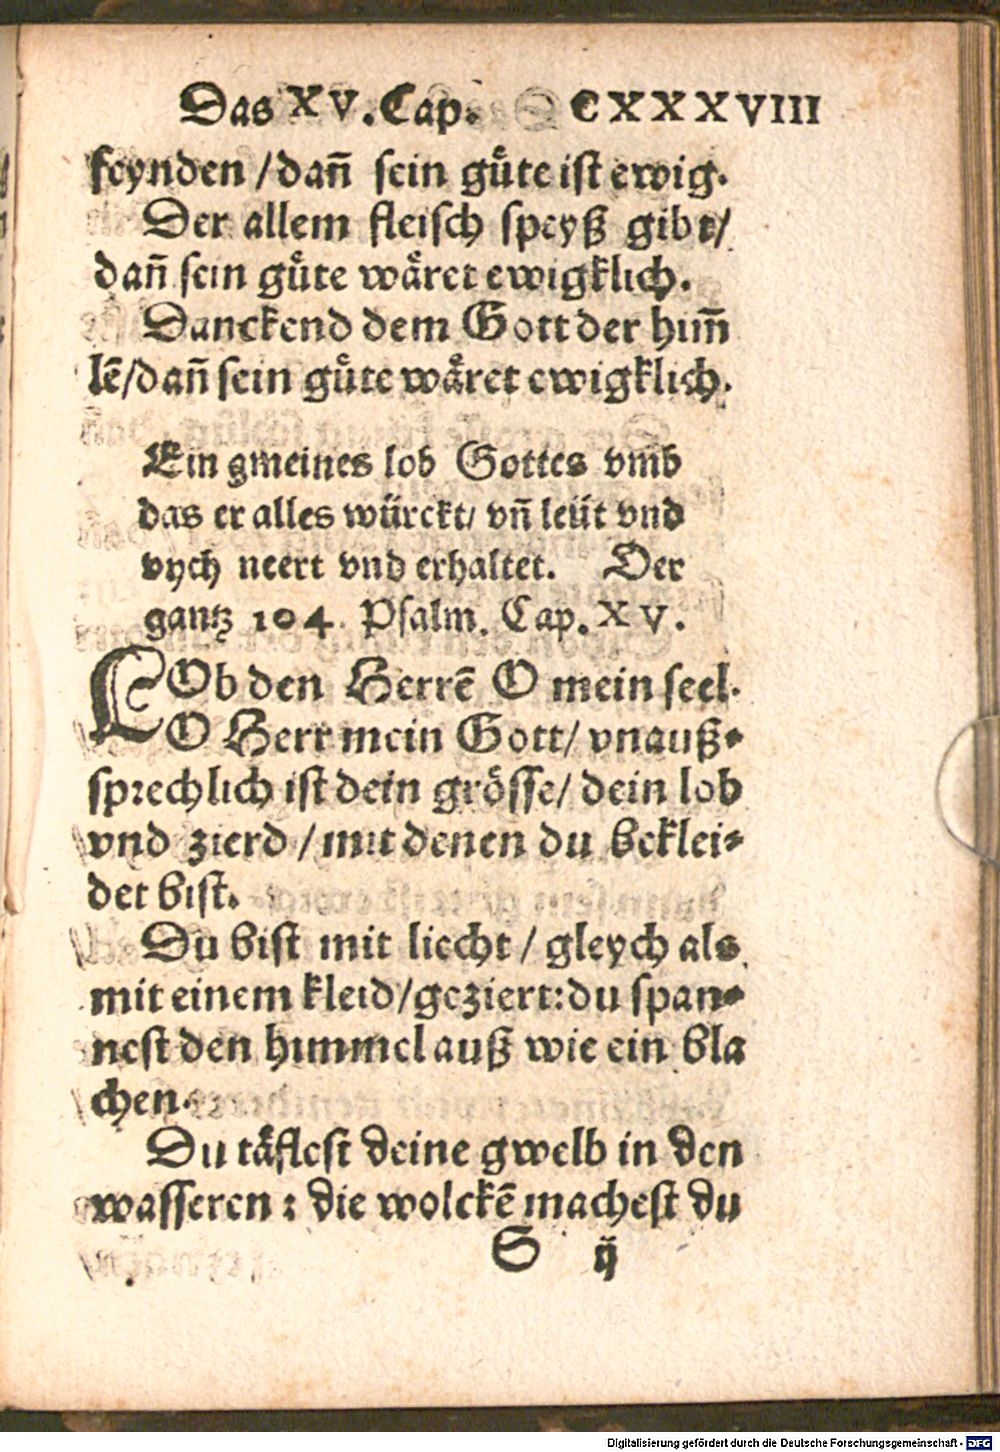 Das XV. Cap. CXXXVIII
feynden / dañ sein guͤte ist ewig.
Der allem fleisch speyß gibt /
dañ sein guͤte waͤret ewigklich.
Danckend dem Gott der him̃
lẽ / dañ sein guͤte waͤret ewigklich.
Ein gmeines lob Gottes vmb
das er alles würckt / vñ leüt vnd
vych neert vnd erhaltet. Der
gantz 104. Psalm. Cap. XV.
LOb den Herrẽ O mein seel.
O Herr mein Gott / vnauß⸗
sprechlich ist dein groͤsse / dein lob
vnd zierd / mit denen du beklei⸗
det bist.
Du bist mit liecht / gleych als
mit einem kleid / geziert: du span⸗
nest den himmel auß wie ein bla
chen.
Du taͤflest deine gwelb in den
wasseren : die wolckẽ machest du
S ij
Digitalisierung gefördert durch die Deutsche Forschungsgemeinschaft - DFG